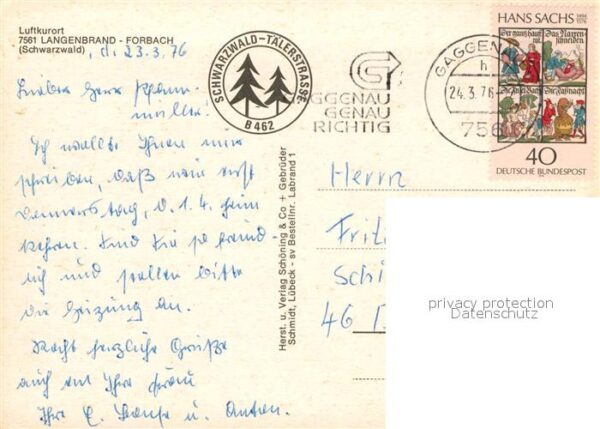 Luftkurort
7561 LANGENBRAND - FORBACH
(Schwarzwald) , d. 23.3.76
Lieber Herr
Ich wollte Ihnen nur
schreiben, daß wir erst
Donnerstag, d. 1.4. heim
kehren. Sind Sie so freund-
lich und stellen bitte
die Heizung an.
Recht herzliche Grüße
auch an Ihre Frau
Ihre u. Anton.
SCHWARZWALD-TÄLERSTRASSE
B 462
GGENAU
GENAU
RICHTIG
GAGGENAU
h
24.3.76
756
HANS SACHS 1494 1576
Der gantz hauß rat Das Narren schneiden
Der Faßnacht
40
DEUTSCHE BUNDESPOST
Herst. u. Verlag Schöning & Co + Gebrüder
Schmidt, Lübeck - sv Bestellnr. Labrand 1
Herrn
Fritz
Schi
46 D
privacy protection
Datenschutz